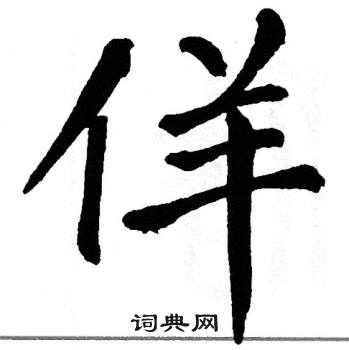 佯
词典网